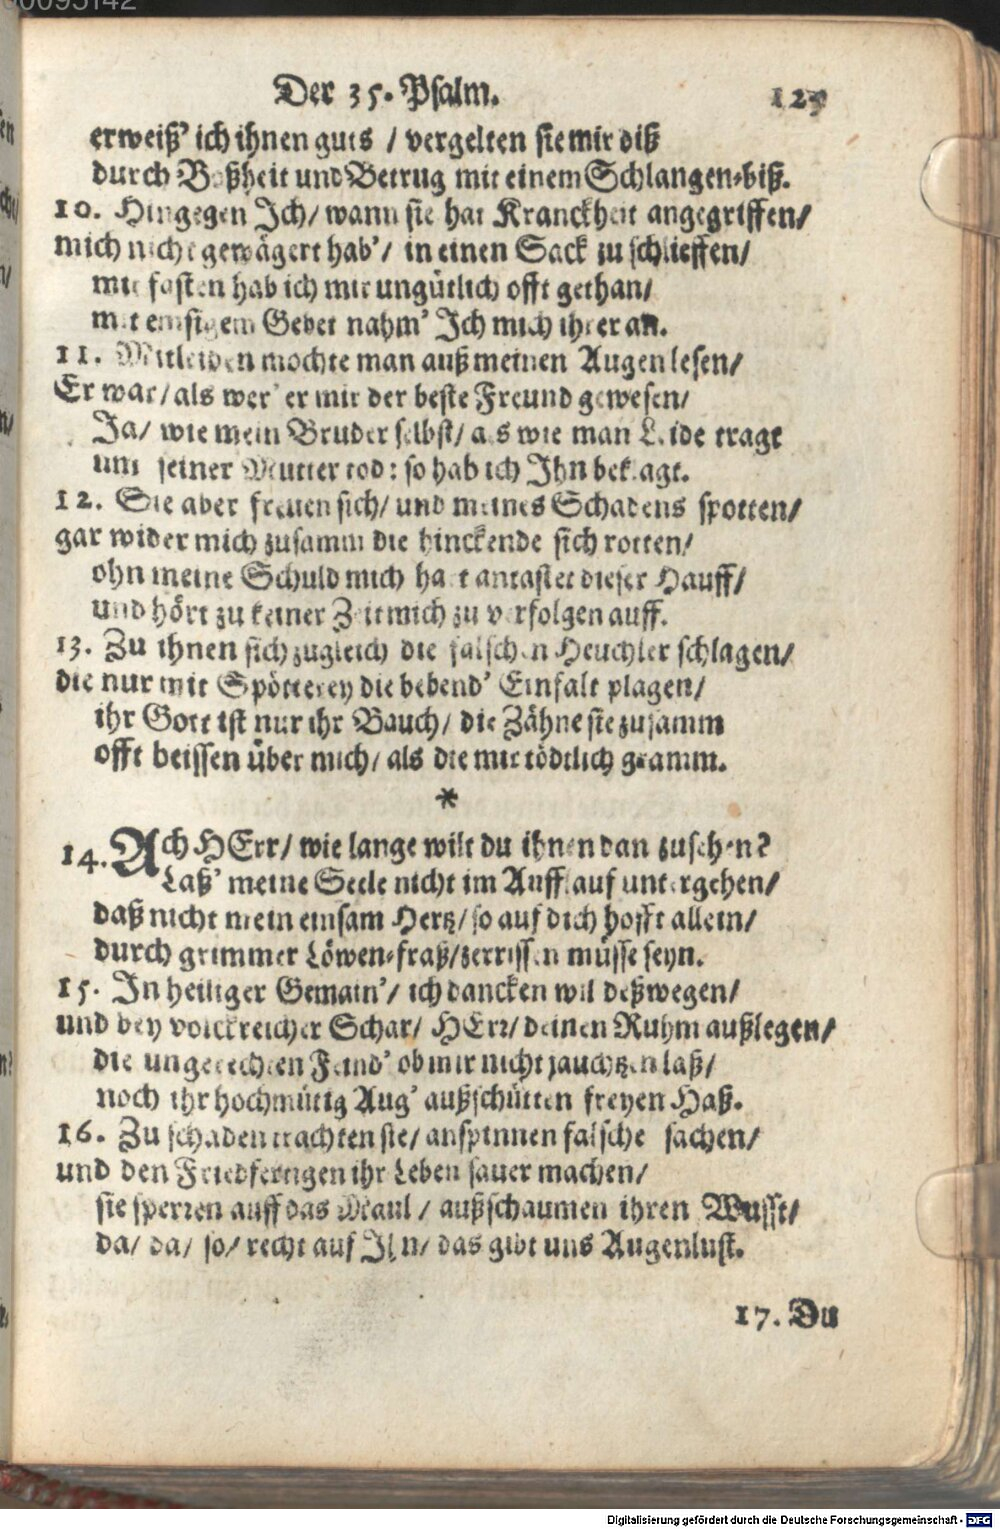 00095142
Der 35. Psalm. 125
erweiß' ich ihnen guts / vergelten sie mir diß
durch Boßheit und Betrug mit einem Schlangen-biß.
10. Hingegen Ich/ wann sie hat Kranckheit angegriffen/
mich nicht gewägert hab'/ in einen Sack zu schlieffen/
mit fasten hab ich mir ungütlich offt gethan/
mit emsigem Gebet nahm' Ich mich ihrer an.
11. Mitleiden mochte man auß meinen Augen lesen/
Er war/ als wer' er mir der beste Freund gewesen/
Ja/ wie mein Bruder selbst/ als wie man Leide tragt
um seiner Mutter tod: so hab ich Ihn beklagt.
12. Sie aber freuen sich/ und meines Schadens spotten/
gar wider mich zusamm die hinckende sich rotten/
ohn meine Schuld mich hart antastet dieser Hauff/
und hört zu keiner Zeit mich zu verfolgen auff.
13. Zu ihnen sich zugleich die falschen Heuchler schlagen/
die nur mit Spötterey die bebend' Einfalt plagen/
ihr Gott ist nur ihr Bauch/ die Zähne sie zusamm
offt beissen über mich/ als die mir tödtlich gramm.
*
14. Ach HErr/ wie lange wilt du ihnen dan zusehen?
Laß' meine Seele nicht im Aufflauf untergehen/
daß nicht mein einsam Hertz/ so auf dich hofft allein/
durch grimmer Löwen-fraß/ zerrissen müsse seyn.
15. In heiliger Gemain'/ ich dancken wil deßwegen/
und bey volckreicher Schar/ HErr/ deinen Ruhm außlegen/
die ungerechten Feind' ob mir nicht jauchtzen laß/
noch ihr hochmütig Aug' außschütten freyen Haß.
16. Zu schaden trachten sie/ anspinnen falsche sachen/
und den Friedfertigen ihr Leben sauer machen/
sie sperren auff das Maul / außschaumen ihren Wusst/
da/ da/ so/ recht auf Ihn/ das gibt uns Augenlust.
17. Du
Digitalisierung gefördert durch die Deutsche Forschungsgemeinschaft - DFG